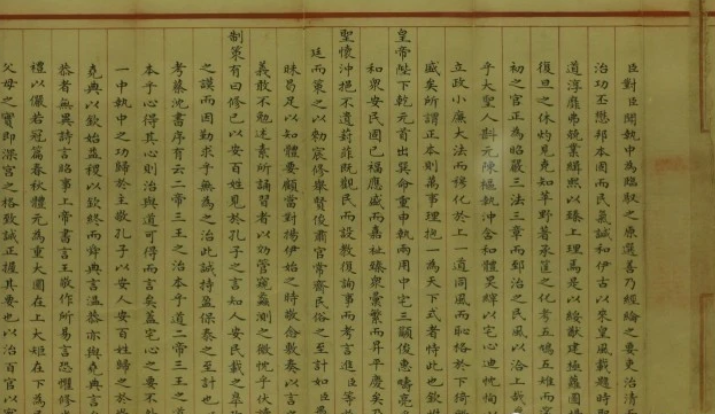 臣對臣聞執中為臨馭之原選善乃經綸之要吏治清
治功丕懋邦本固而民氣誠和伊古以來皇風載題時
道淳龐弗競業緝熙以臻上理焉是以綏猷建極蘿圖
復旦之休灼見克知苹野普承筐之化考五鳩五雉而
初之官正為昭嚴三法三章而郅治之民風以洽上哉
乎大聖人斟元陳樞執沖含和體昊縡以宅心迪忱恂
立政小廉大法而務化於上一道同風而恥格於下猗歟
盛矣所謂正本則萬事理抱一為天下式者恃此也欽惟
皇帝陛下乾元首出巽命重申執兩用中宅三顯俊惠疇亮
和眾安民固已福應盛而嘉祉臻眾彙繁而昇平慶矣乃
聖懷沖挹不遺葑菲既觀民而設教復詢事而考言進臣等
廷而策之以勅宸修舉賢俊肅官常齊民俗之至計如臣
昧曷足以知體要顧當對揚伊始之時敬念敷奏以言
義敢不勉述素所誦習者以効管窺蠡測之微忱乎伏讀
制策有曰修己以安百姓見於孔子之言知人安民載之皋
之謨而因勤求乎無為之治此誠持盈保泰之至計也
考蔡沈書序有云二帝三王之治本乎道二帝三王之道
本乎心得其心則治與道可得而言矣蓋宅心之要不外
一中執中之功歸於主敬孔子以安人安百姓歸之於
堯典以欽始益稷以欽終而舜典言溫恭亦與堯典言
恭者無異詩言昭事上帝書言王敬作所易言恐懼修
禮以儼若冠篇春秋體元為重大圜在上大矩在下為
父母之實即深宮之格致誠正握其要也以治百官以